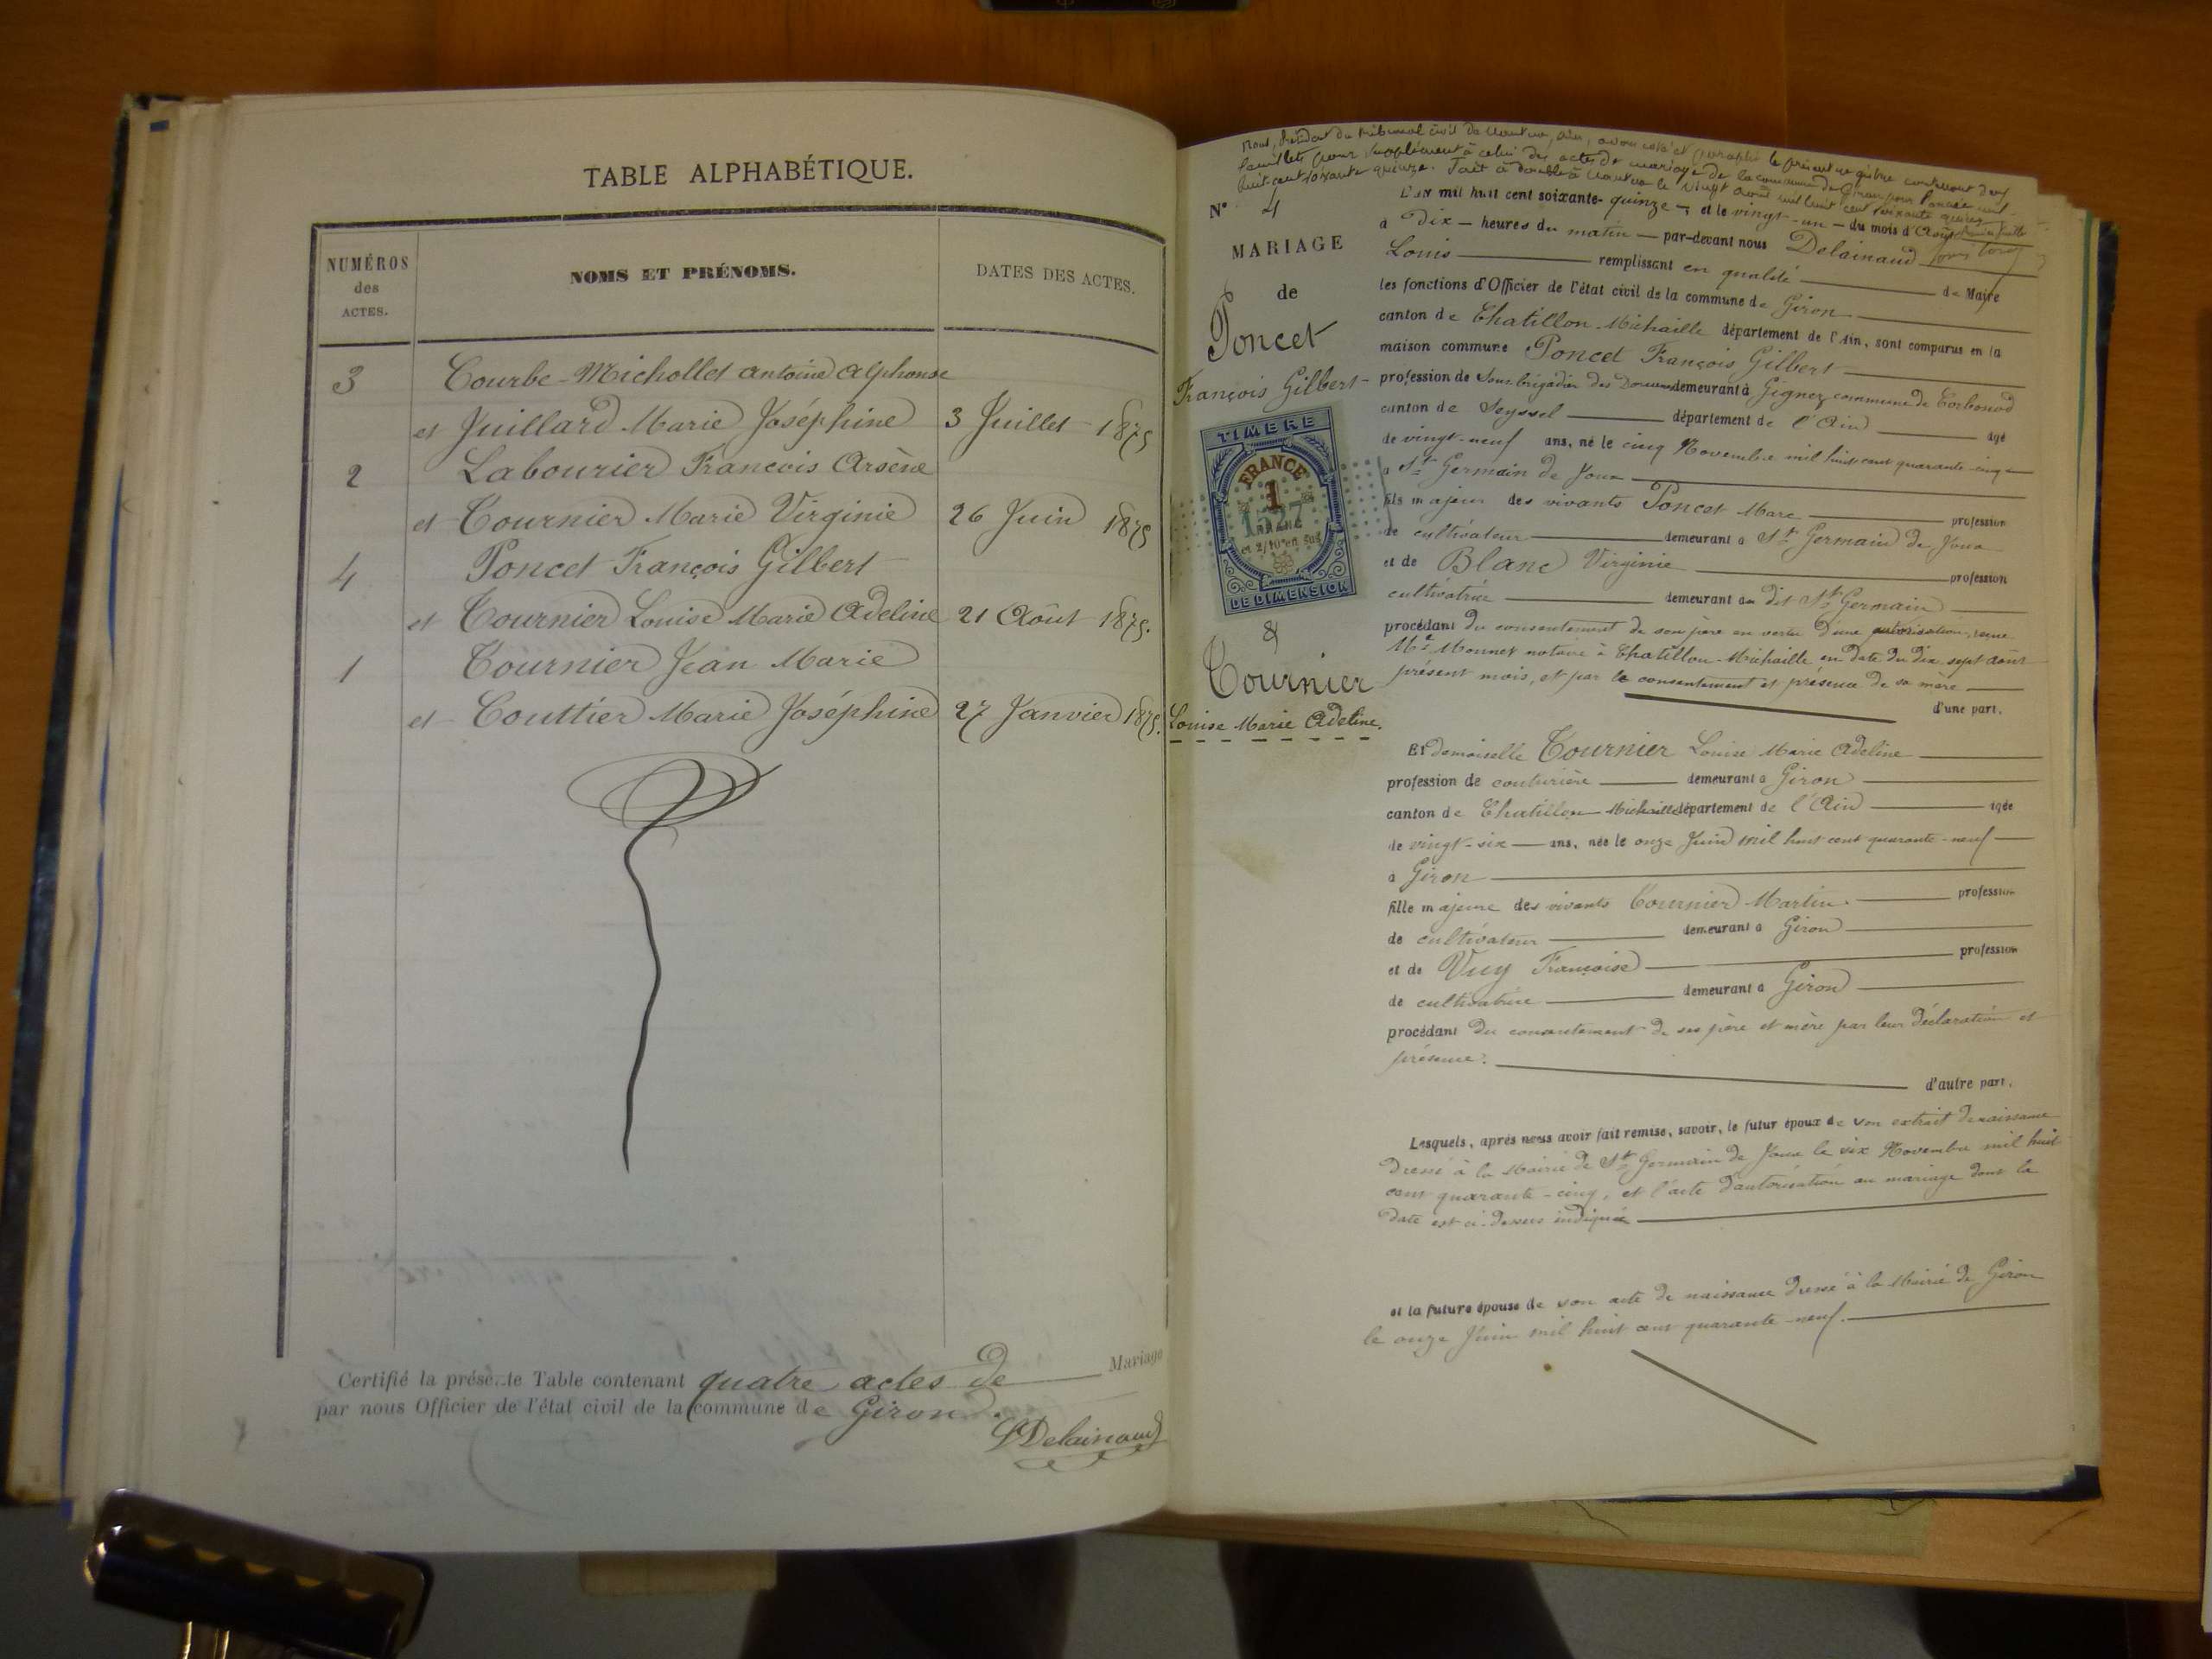 TABLE ALPHABÉTIQUE.
NUMÉROS
des
ACTES.
NOMS ET PRÉNOMS.
DATES DES ACTES.
3 Courbe-Michollet Antoine Alphonse
et Juillard Marie Joséphine 3 Juillet 1875
2 Labourier François Arsène
et Tournier Marie Virginie 26 Juin 1875
4 Poncet François Gilbert
et Tournier Louise Marie Adeline 21 Août 1875.
1 Tournier Jean Marie
et Couttier Marie Joséphine 27 Janvier 1875.
Certifié la présente Table contenant quatre actes de Mariage
par nous Officier de l'état civil de la commune de Giron.
LDelainaud
Nous, Président du tribunal civil de Nantua, Ain, avons coté et paraphé le présent registre contenant deux
feuillets pour supplément à celui des actes de mariage de la commune de Giron pour l'année mil
huit cent soixante quinze. Fait à double à Nantua le vingt août mil huit cent soixante quinze
N° 4
MARIAGE
de
Poncet
François Gilbert
TIMBRE
FRANCE
1
1527
FRANC
et 2/10 en sus
DE DIMENSION
&
Tournier
Louise Marie Adeline.
L'an mil huit cent soixante-quinze, et le vingt-un du mois d'Août
à Dix heures du matin par-devant nous Delainaud
Louis remplissant en qualité de Maire
les fonctions d'Officier de l'état civil de la commune de Giron
canton de Chatillon-Michaille département de l'Ain, sont comparus en la
maison commune Poncet François Gilbert
profession de Sous brigadier des Douanes demeurant à Gignez commune de Corbonod
canton de Seyssel département de l'Ain âgé
de vingt-neuf ans, né le cinq Novembre mil huit cent quarante-cinq
à St Germain de Joux
fils majeur des vivants Poncet Marc profession
de cultivateur demeurant à St Germain de Joux
et de Blanc Virginie profession
cultivatrice demeurant au dit St Germain
procédant du consentement de son père en vertu d'une autorisation, reçue
Me Monnet notaire à Chatillon-Michaille en date du dix sept août
présent mois, et par le consentement et présence de sa mère
d'une part.
Et demoiselle Tournier Louise Marie Adeline
profession de couturière demeurant à Giron
canton de Chatillon-Michaille département de l'Ain âgée
de vingt-six ans, née le onze Juin mil huit cent quarante-neuf
à Giron
fille majeure des vivants Tournier Martin. profession
de cultivateur demeurant à Giron
et de Vuy Françoise profession
de cultivatrice demeurant à Giron
procédant du consentement de ses père et mère par leur déclaration et
présence.
d'autre part.
Lesquels, après nous avoir fait remise, savoir, le futur époux de son extrait de naissance
Dressé à la Mairie de St Germain de Joux le six Novembre mil huit
cent quarante-cinq, et l'acte d'autorisation au mariage dont la
date est ci-dessus indiquée
et la future épouse de son acte de naissance dressé à la Mairie de Giron
le onze Juin mil huit cent quarante-neuf.